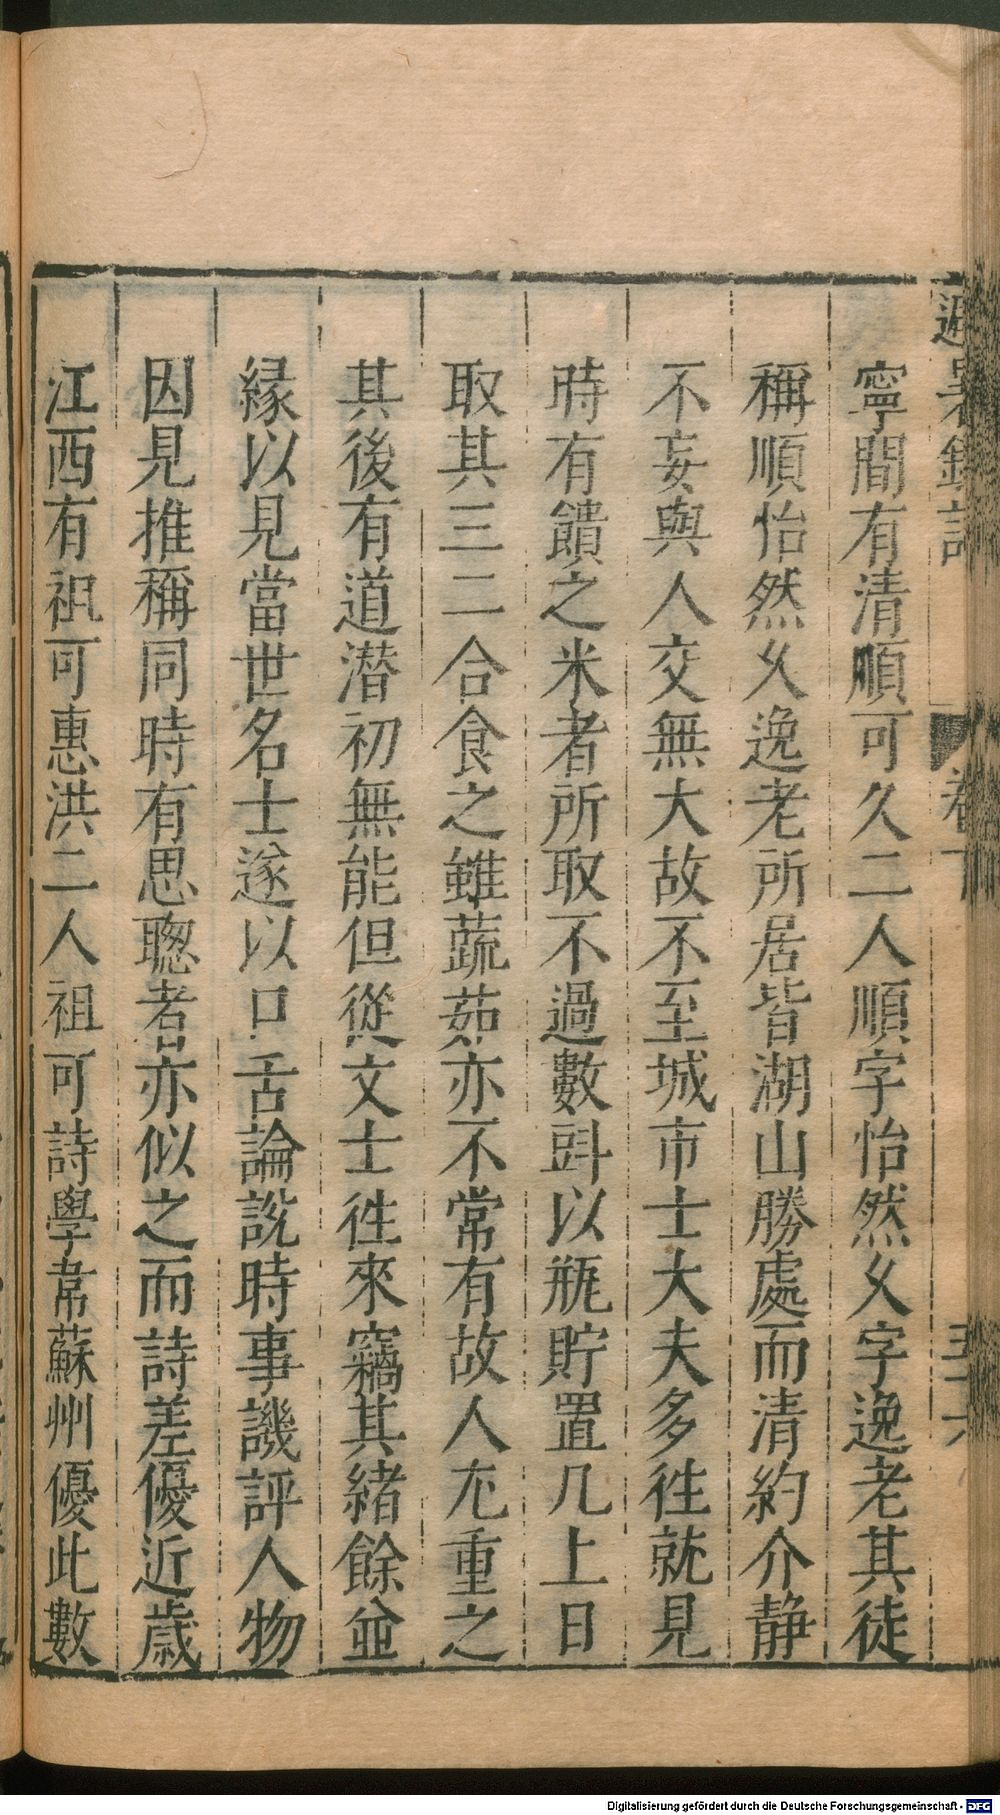 避暑錄話
卷下
五十六
寧間有清順可久二人順字怡然久字逸老其徒
稱順怡然久逸老所居皆湖山勝處而清約介静
不妄與人交無大故不至城市士大夫多徃就見
時有饋之米者所取不過數㪷以瓶貯置几上日
取其三二合食之雖蔬茹亦不常有故人尤重之
其後有道潜初無能但從文士徃來竊其緒餘並
縁以見當世名士遂以口舌論説時事譏評人物
因見推稱同時有思聰者亦似之而詩差優近歲
江西有祖可惠洪二人祖可詩學韋蘇州優此數
Digitalisierung gefördert durch die Deutsche Forschungsgemeinschaft - DFG